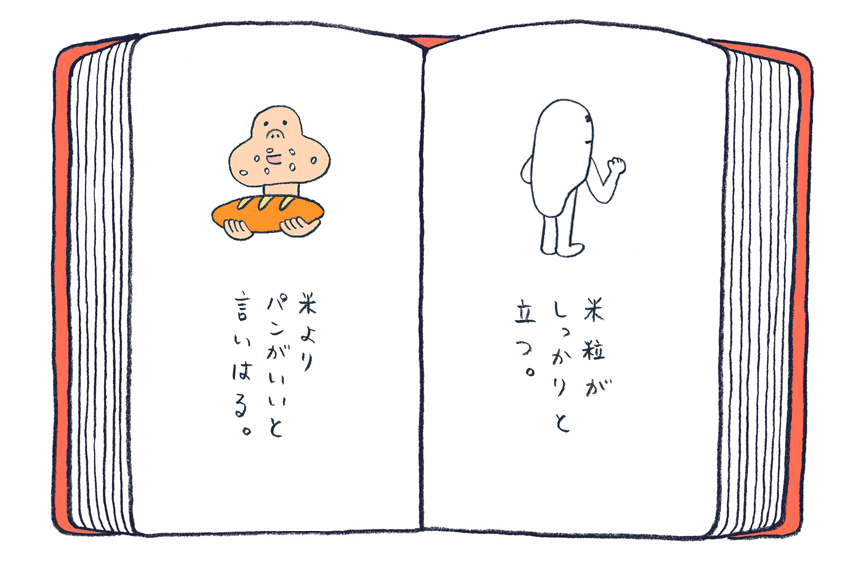 米粒が
しっかりと
立つ。
米より
パンがいいと
言いはる。